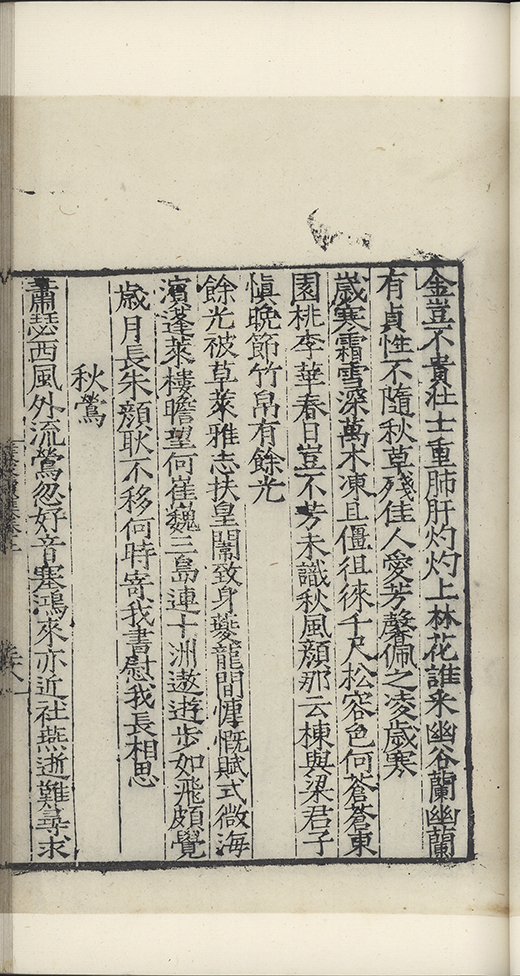 金豈不貴壯士重肺肝灼灼上林花誰采幽谷蘭幽蘭
有貞性不隨秋草殘佳人愛芳馨佩之凌歲寒
歲寒霜雪深萬木凍且僵徂徠千尺松容色何蒼蒼東
園桃李華春日豈不芳未識秋風顏那云棟與梁君子
慎晚節竹帛有餘光
餘光被草萊雅志扶皇闈致身夔龍間慷慨賦式微海
濱蓬萊樓瞻望何崔巍三島連十洲遨遊步如飛頗覺
歲月長朱顏耿不移何時寄我書慰我長相思
秋鶯
肅瑟西風外流鶯忽好音塞鴻來亦近社燕逝難尋求